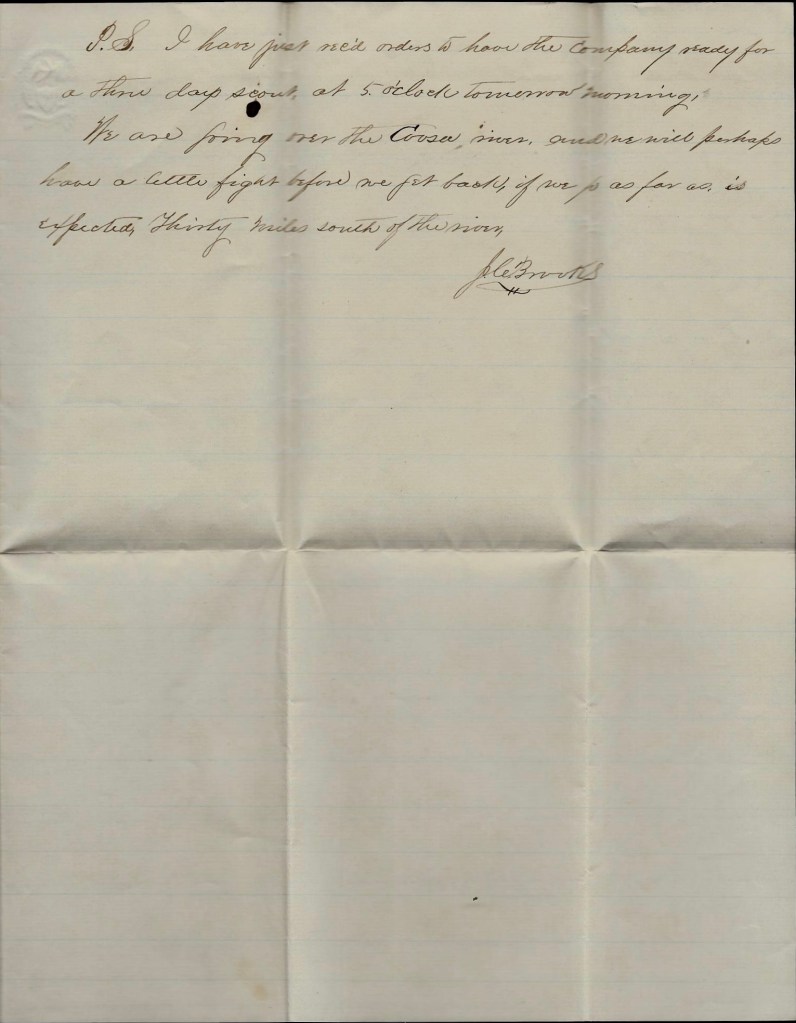 P.S. I have just rec'd orders to have the Company ready for
a three days scout, at 5 o'clock tomorrow morning,
We are going over the Coosa river, and we will perhaps
have a little fight before we get back, if we go as far as is
expected, Thirty miles south of the river,
J.C. Brooks